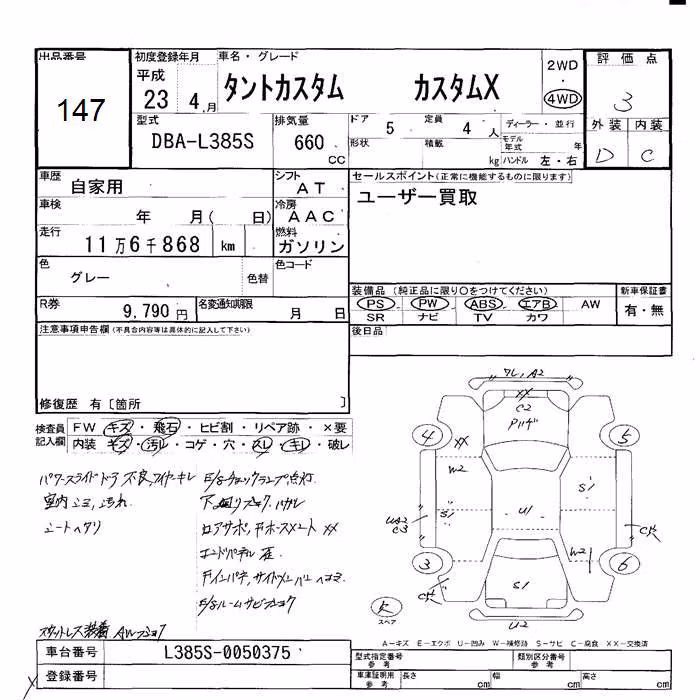 出品番号
147
初度登録年月
平成
23 4 月
車名・グレード
タントカスタム カスタムX
2WD
・
4WD
評価点
3
外装 内装
D C
型式
DBA-L385S
排気量
660
CC
ドア 5
定員 4 人
形状
積載 kg
ディーラー・並行
モデル年式 年
ハンドル 左・右
車歴
自家用
シフト
AT
車検
年 月( 日)
冷房
AAC
走行
11万6千868 km
燃料
ガソリン
色
グレー
色替
色コード
R券
9,790 円
名変通知期限
月 日
セールスポイント(正常に機能するものに限ります)
ユーザー買取
装備品 (純正品に限り〇をつけてください)
PS PW ABS エアB AW
SR ナビ TV カワ
新車保証書
有・無
後日品
注意事項申告欄(不具合内容等は具体的に記入して下さい)
修復歴 有〔箇所 〕
検査員
記入欄
FW キズ・飛石・ヒビ割・リペア跡・×要
内装 キズ・汚レ・コゲ・穴・スレ・キレ・破レ
パワースライドドア不良,ワイヤーキレ
室内ゴミ,汚れ
シートヘタリ
E/gチェックランプ点灯
ロアサポ,
XX
ワレ,A2
XX
C2
4
5
XX
W2
S1
S1
U1
UA2
C3
W2
3
6
S1
U2
スペア
A-キズ E-エクボ U-凹み W-補修跡 S-サビ C-腐食 XX-交換済
車台番号
L385S-0050375
登録番号
型式指定番号
参考
類別区分番号
参考
車庫証明用
参考
長さ cm
幅 cm
高さ cm